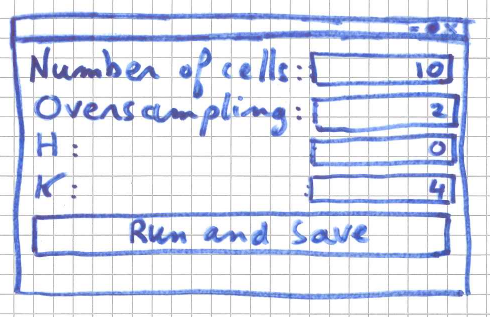 Number of cells: 10
Oversampling: 2
H: 0
K: 4
Run and Save